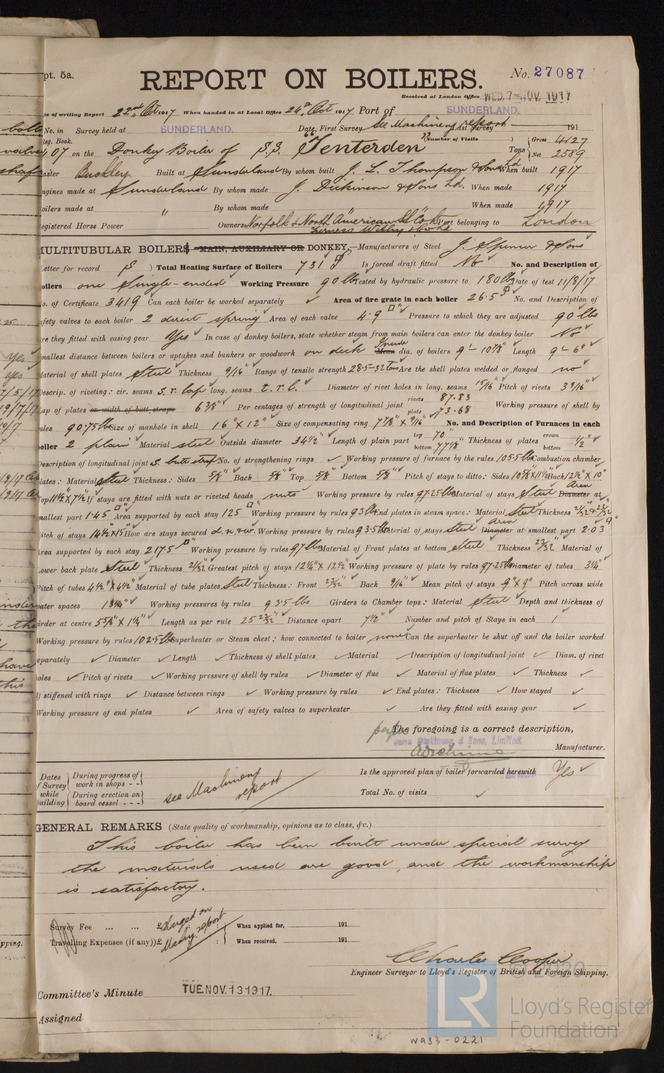 pt. 5a.
REPORT ON BOILERS.
No. 27087
Received at London Office WED. 7-NOV. 1917
te of writing Report 22nd Oct 1917 When handed in at Local Office 24th Oct 1917 Port of SUNDERLAND.
No. in Survey held at SUNDERLAND. Date, First Survey see Machinery report Last Survey 191
Reg. Book. Number of Visits
07 on the Donkey Boiler of S.S. Tenterden Tons Gross 4427 Net 2589
Master Buckley Built at Sunderland By whom built J. L. Thompson & Sons Ld When built 1917
Engines made at Sunderland By whom made J. Dickinson & Sons Ld. When made 1917
Boilers made at " By whom made When made 1917
Registered Horse Power Owners Norfolk & North American SS Co Ld Port belonging to London
Furness Withy & Co Ld
MULTITUBULAR BOILERS MAIN, AUXILIARY OR DONKEY.—Manufacturers of Steel J. Spencer & Sons
Letter for record S ) Total Heating Surface of Boilers 731 Is forced draft fitted No No. and Description of
Boilers one Single-ended Working Pressure 90 lbs Tested by hydraulic pressure to 180 lbs Date of test 11/8/17
No. of Certificate 3419 Can each boiler be worked separately ✓ Area of fire grate in each boiler 26.5 No. and Description of
safety valves to each boiler 2 direct spring Area of each valve 4.9 Pressure to which they are adjusted 90 lbs
Are they fitted with easing gear Yes In case of donkey boilers, state whether steam from main boilers can enter the donkey boiler No
Smallest distance between boilers or uptakes and bunkers or woodwork on deck Inside dia. of boilers 9'-10 7/8" Length 9'-6"
Material of shell plates Steel Thickness 9/16" Range of tensile strength 28.5-32 tons Are the shell plates welded or flanged no
Descrip. of riveting: cir. seams S.R. lap long. seams T.R.L. Diameter of rivet holes in long. seams 15/16" Pitch of rivets 3 3/16"
Lap of plates or width of butt straps 6 3/8" Per centages of strength of longitudinal joint rivets 87.83 plate 73.68 Working pressure of shell by
rules 90.75 lbs Size of manhole in shell 16" x 12" Size of compensating ring 7 7/8" x 9/16" No. and Description of Furnaces in each
boiler 2 plain Material steel Outside diameter 34 1/2" Length of plain part top 70" bottom 77 1/2" Thickness of plates crown bottom 1/2"
Description of longitudinal joint S. butt strap No. of strengthening rings ✓ Working pressure of furnace by the rules 105.5 lbs Combustion chamber
plates: Material Steel Thickness: Sides 5/8" Back 5/8" Top 5/8" Bottom 5/8" Pitch of stays to ditto: Sides
If stays are fitted with nuts or riveted heads nuts Working pressure by rules 97.25 lbs Material of stays Steel Diameter Area at
smallest part 1.45 Area supported by each stay 125 Working pressure by rules 93 lbs End plates in steam space: Material Steel Thickness
Pitch of stays 14 1/2" x 15" How are stays secured d.n.&w. Working pressure by rules 93.5 lbs Material of stays Steel Area Diameter at smallest part 2.03
Area supported by each stay 217.5 Working pressure by rules 97 lbs Material of Front plates at bottom Steel Thickness 23/32" Material of
Lower back plate Steel Thickness 21/32" Greatest pitch of stays Working pressure of plate by rules 97.25 lbs Diameter of tubes 3 1/4"
Pitch of tubes 4 1/2" x 4 1/2" Material of tube plates Steel Thickness: Front 23/32" Back 9/16" Mean pitch of stays 9" x 9" Pitch across wide
water spaces Working pressures by rules 93.5 lbs Girders to Chamber tops: Material Steel Depth and thickness of
girder at centre Length as per rule 25 23/32" Distance apart 7 1/2" Number and pitch of Stays in each 1
Working pressure by rules 102.5 lbs Superheater or Steam chest; how connected to boiler none Can the superheater be shut off and the boiler worked
separately ✓ Diameter ✓ Length ✓ Thickness of shell plates ✓ Material ✓ Description of longitudinal joint ✓ Diam. of rivet
holes ✓ Pitch of rivets ✓ Working pressure of shell by rules ✓ Diameter of flue ✓ Material of flue plates ✓ Thickness ✓
If stiffened with rings ✓ Distance between rings ✓ Working pressure by rules ✓ End plates: Thickness ✓ How stayed ✓
Working pressure of end plates ✓ Area of safety valves to superheater ✓ Are they fitted with easing gear ✓
The foregoing is a correct description,
John Dickinson & Sons, Limited
Manufacturer.
Dates of Survey while building During progress of work in shops - - During erection on board vessel - - - see Machinery report
Is the approved plan of boiler forwarded herewith Yes
Total No. of visits ✓
GENERAL REMARKS (State quality of workmanship, opinions as to class, &c.)
This boiler has been built under special survey
the materials used are good, and the workmanship
is satisfactory.
Survey Fee ... ... £ charged on When applied for, 191
Travelling Expenses (if any) £ Machy. report When received, 191
Charles Cooper
Engineer Surveyor to Lloyd's Register of British and Foreign Shipping.
Committee's Minute TUE. NOV. 13 1917.
Assigned
© 2020
LR
Lloyd's Register
Foundation
W933-0221